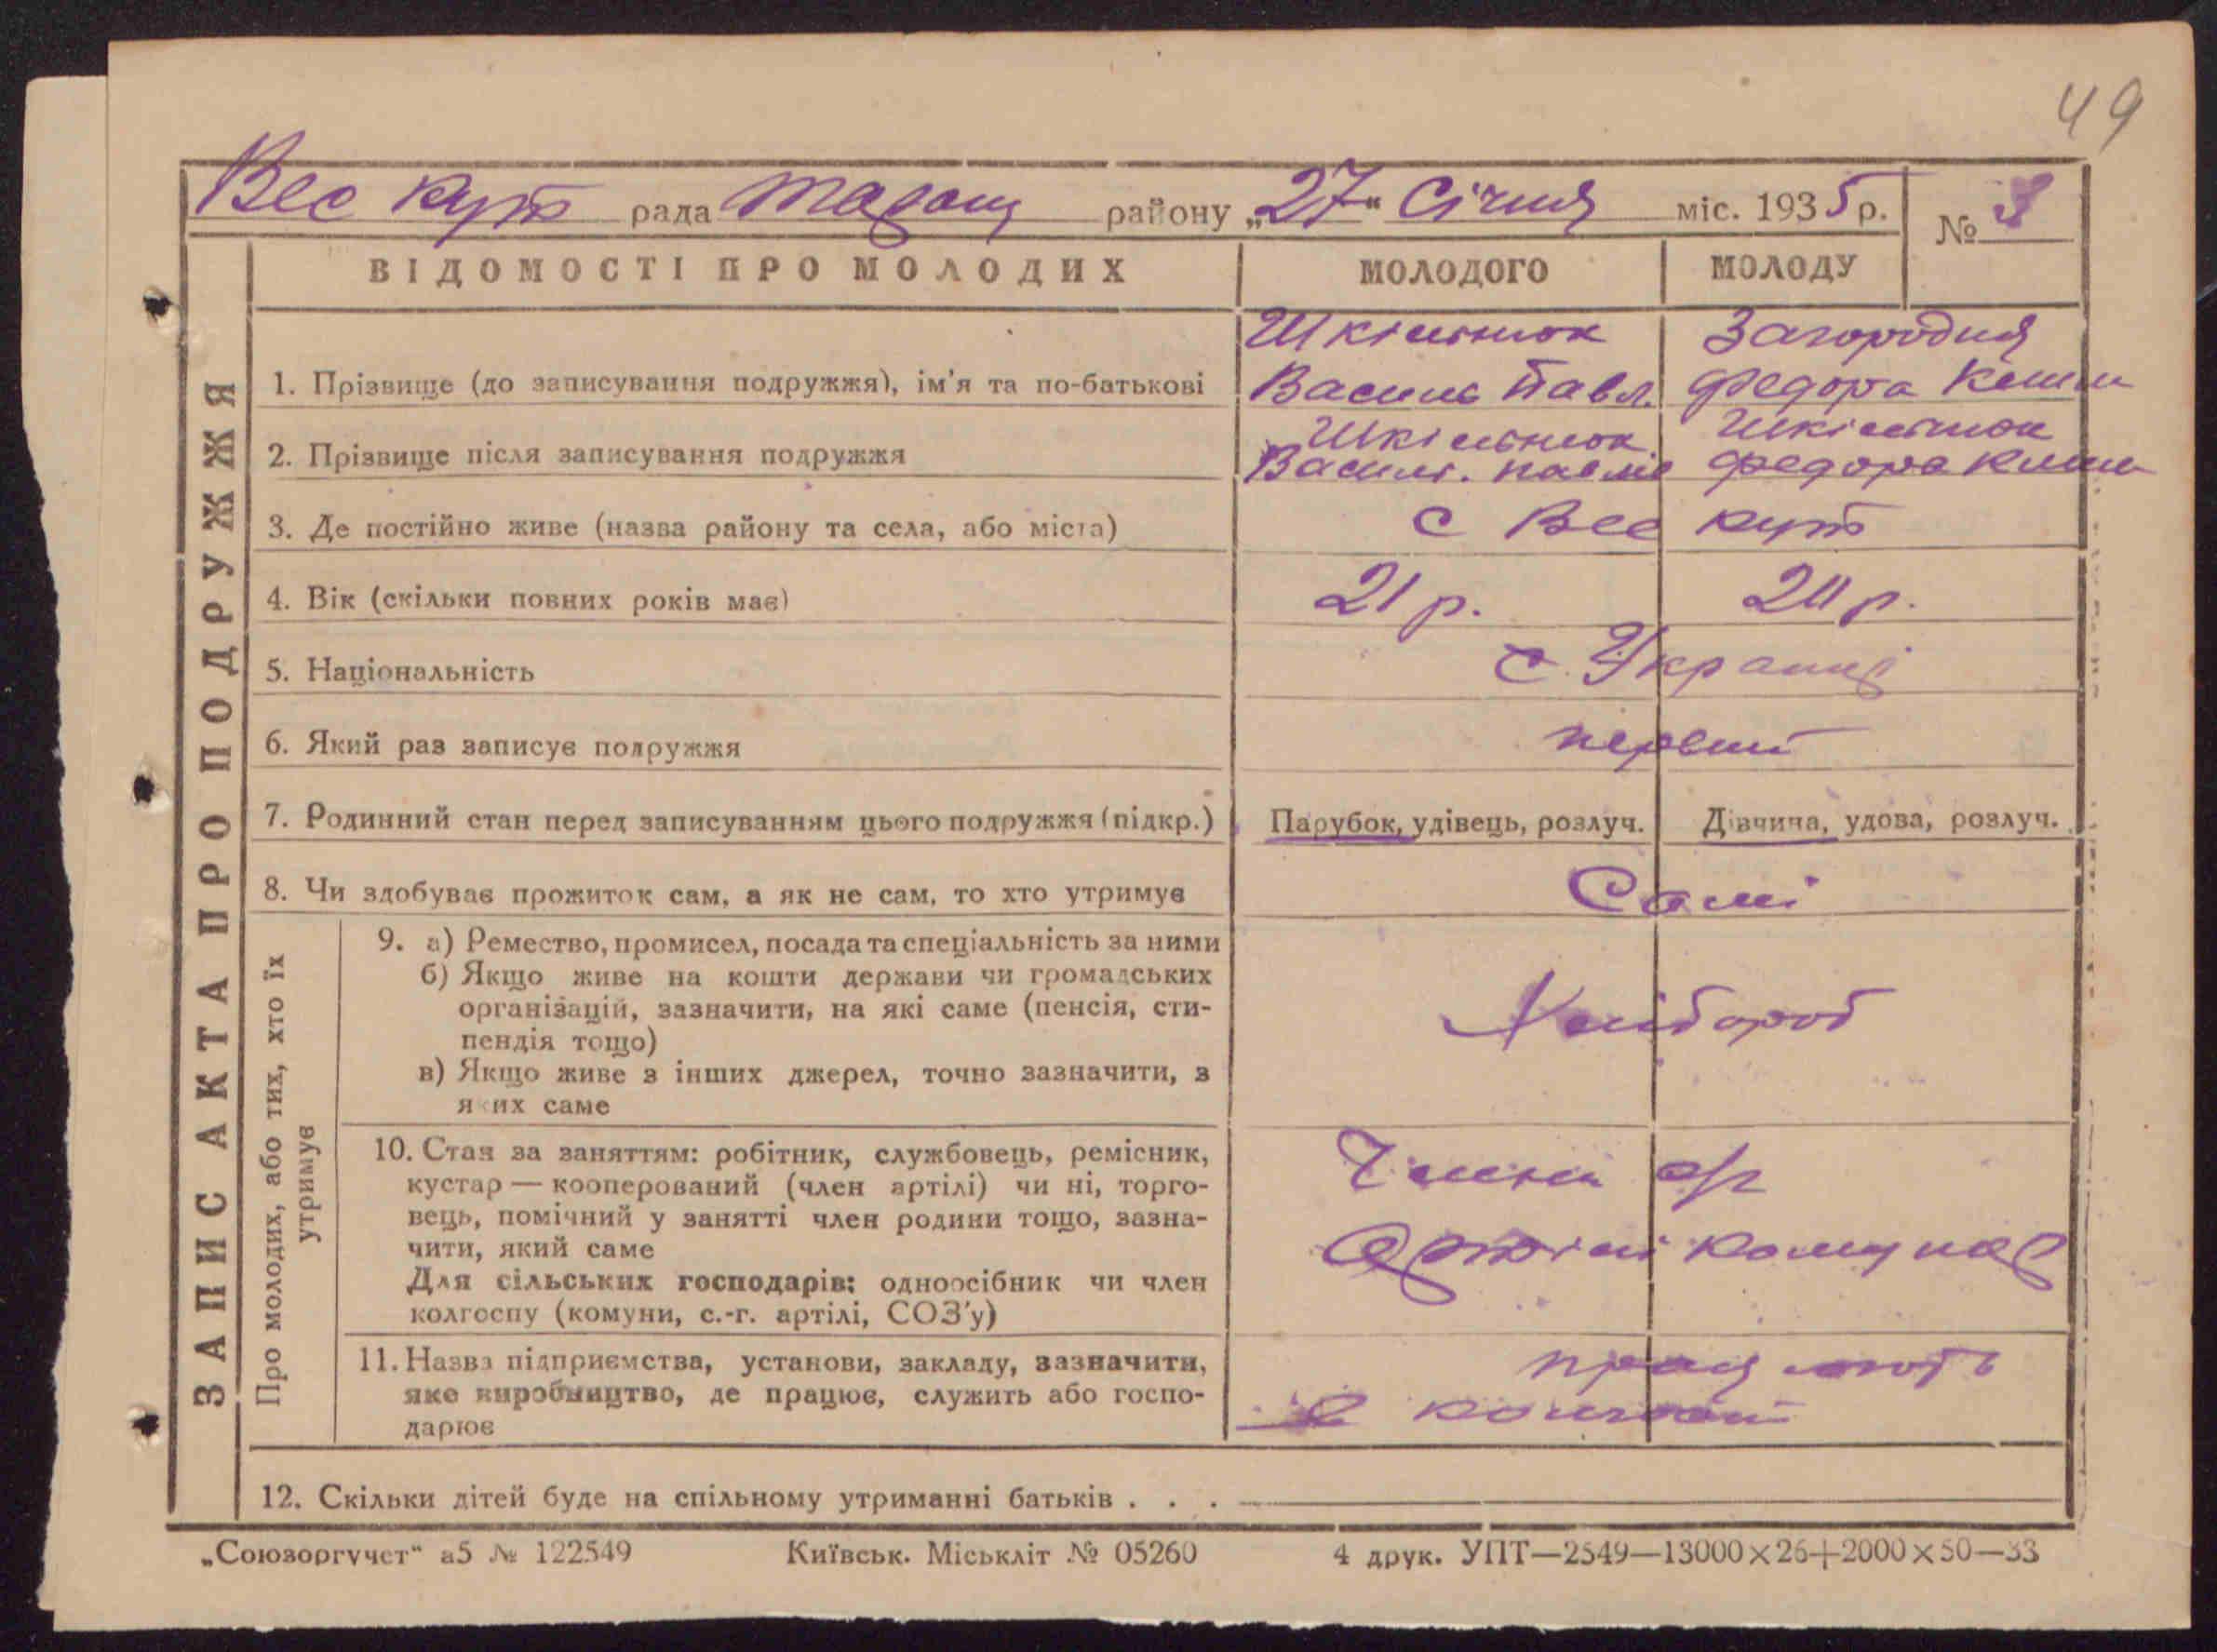 49
Вес кут рада Таращ району „27“ Січня міс. 1935 р. №
ВІДОМОСТІ ПРО МОЛОДИХ МОЛОДОГО МОЛОДУ
ЗАПИС АКТА ПРО ПОДРУЖЖЯ
1. Прізвище (до записування подружжя), ім'я та по-батькові
Шкільнюк
Василь Павл.
Загородня
Федора
2. Прізвище після записування подружжя
Шкільнюк
Василь. Павлів
Шкільнюк
Федора
3. Де постійно живе (назва району та села, або міста) с Вес кут
4. Вік (скільки повних років має) 21 р. 20 р.
5. Національність
6. Який раз записує подружжя первий
7. Родинний стан перед записуванням цього подружжя (підкр.) Парубок, удівець, розлуч. Дівчина, удова, розлуч.
8. Чи здобуває прожиток сам, а як не сам, то хто утримує Самі
Про молодих, або тих, хто їх
утримує
9. а) Ремество, промисел, посада та спеціальність за ними
б) Якщо живе на кошти держави чи громадських
організацій, зазначити, на які саме (пенсія, сти-
пендія тощо)
в) Якщо живе з інших джерел, точно зазначити, з
яких саме
Хлібороб
10. Стан за заняттям: робітник, службовець, ремісник,
кустар — кооперований (член артілі) чи ні, торго-
вець, помічний у занятті член родини тощо, зазна-
чити, який саме
Для сільських господарів: одноосібник чи член
колгоспу (комуни, с.-г. артілі, СОЗ'у)
Члени с/г
Артілі комунар
11. Назва підприємства, установи, закладу, зазначити,
яке виробництво, де працює, служить або госпо-
дарює
працюють
в колгоспі
12. Скільки дітей буде на спільному утриманні батьків . . .
„Союзоргучет“ а5 № 122549 Київськ. Міськліт № 05260 4 друк. УПТ—2549—13000×26+2000×50—33